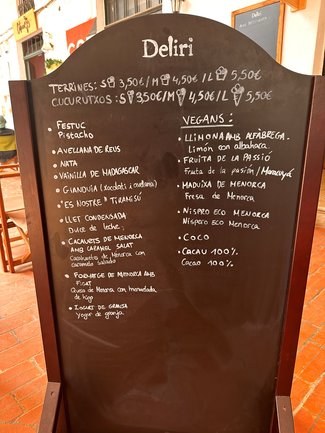 Deliri
TERRINES: S 3,50€/M 4,50€/L 5,50€
CUCURUTXOS: S 3,50€/M 4,50€/L 5,50€
• FESTUC
Pistacho
• AVELLANA DE REUS
• NATA
• VAINILLA DE MADAGASCAR
• GIANDUIA (xocolata i avellana)
• "ES NOSTRE" TIRAMISÚ
• LLET CONDENSADA
Dulce de leche
• CACAUETS DE MENORCA
AMB CARAMEL SALAT
Cacahuetes de Menorca con
caramelo salado
• FORMATGE DE MENORCA AMB
FIGAT
Queso de Menorca con mermelada
de higo
• IOGURT DE GRANJA
Yogur de granja
VEGANS:
• LLIMONA AMB ALFÀBREGA
Limón con albahaca
• FRUITA DE LA PASSIÓ
Fruta de la pasión/Maracuyá
• MADUIXA DE MENORCA
Fresa de Menorca
• NISPRO ECO MENORCA
Níspero Eco Menorca
• COCO
• CACAU 100%
Cacao 100%